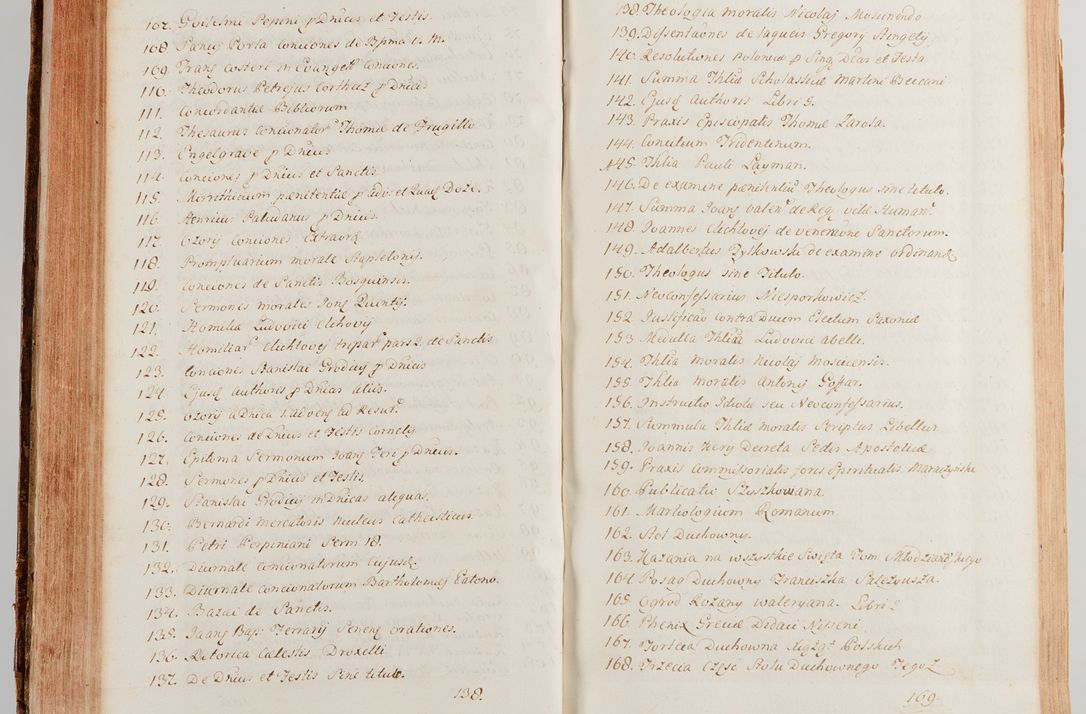 107. Guilelmi Pepini p Dnicas et Festis.
108. Pauli Porta conciones de Bssma V. M.
109. Franc Costeri in Evangel Conciones.
110. Theodorus Petrejus Corthuz p Dnicas
111. Concordantiæ Bibliorum
112. Thesaurus Concionator Thomæ de Trugillo
113. Engelgrave p Dnicas
114. Conciones p Dnicas et Sanctis.
115. poenitentiæ p adv et Quag Doze.
116. Henricus Paludanus p Dnicas.
117. Ozorij Conciones Extraord
118. Promptuarium morale Stapletonij.
119. Conciones de Sanctis Bosquensis.
120. Sermones morales Jong Quentij.
121. Homilia Ludovici Clichovij
122. Homiliar Clichtovej tripar pars 2 de Sanctis
123. Conciones Stanislai Grodicij p Dnicas
124. Ejusd authoris p Dnicas alias.
125. Ozorij a Dnica 1. advens ad Resur.
126. Conciones de Dnicis et Festis Cornelij
127. Epitoma Sermonum Joang Feri p Dnicas.
128. Sermones p Dnicas et Festis.
129. Stanislai Grodicij in Dnicas aliquas.
130. Bernardi Mercatoris Nucleus Catheisticus.
131. Petri Perpiniani Serm 18.
132. Diurnale Concionatorum Cujusd.
133. Diurnale Concionatorum Bartholomej Eateno.
134. Bazæi de Sanctis.
135. Joang Bap: Ferrarij Senens orationes.
136. Retorica Cælestis Droxelli
137. De Dnicis et Festis Sine titulo.
138.
138. Theologia Moralis Nicolaj Moscinendo
139. Dissentaones de laqueis Gregorij Angelij
140. Resolutiones Poloniæ p Sing Dcas et Festa
141. Summa Thliæ Scholasticæ Martini Beccani
142. Ejusd Authoris Libri 5.
143. Praxis Episcopalis Thomæ Zarola.
144. Concilium Tridentinum.
145. Thlia Pauli Layman.
146. De examine pænitentiu Theologus sine titulo.
147. Summa Joang Valen de Reg vitæ Human.
148. Joannes Clichtovej de veneraone Sanctorum.
149. Adalbertus Tylkowski de examine ordinand
150. Theologus sine Titulo.
151. Neoconfessarius Niesporkowicz.
152. Justificao Contra Ducem Electum Saxoniæ
153 Medulla Thliæ Ludovici Abelli.
154. Thlia Moralis Nicolaj Mosciensis.
155. Thlia Moralis Antonij Goffar.
156. Instructio Idiotæ seu Neoconfessarius.
157. Summula Thliæ Moralis Scriptus Libellus
158. Joannis Hery Decreta Sedis Apostolicæ
159. Praxis Commissorialis fores Spiritualis Maraczÿnski
160. Publicatio Szyszkowiana.
161. Martiologium Romanum.
162. Stos Duchowny.
163. Kazania na wszystkie Święta Tom Młodzianowskiego
164. Posag Duchowny Franciszka Salezyusza.
165. Ogrod Rożany waleryana. Libri 2
166. Phenix Greciæ Didaci Nisseni.
167. Forteca Duchowna Xiążąt Polskich
168. Trzecia Część Stolu Duchownego Tegoż
169